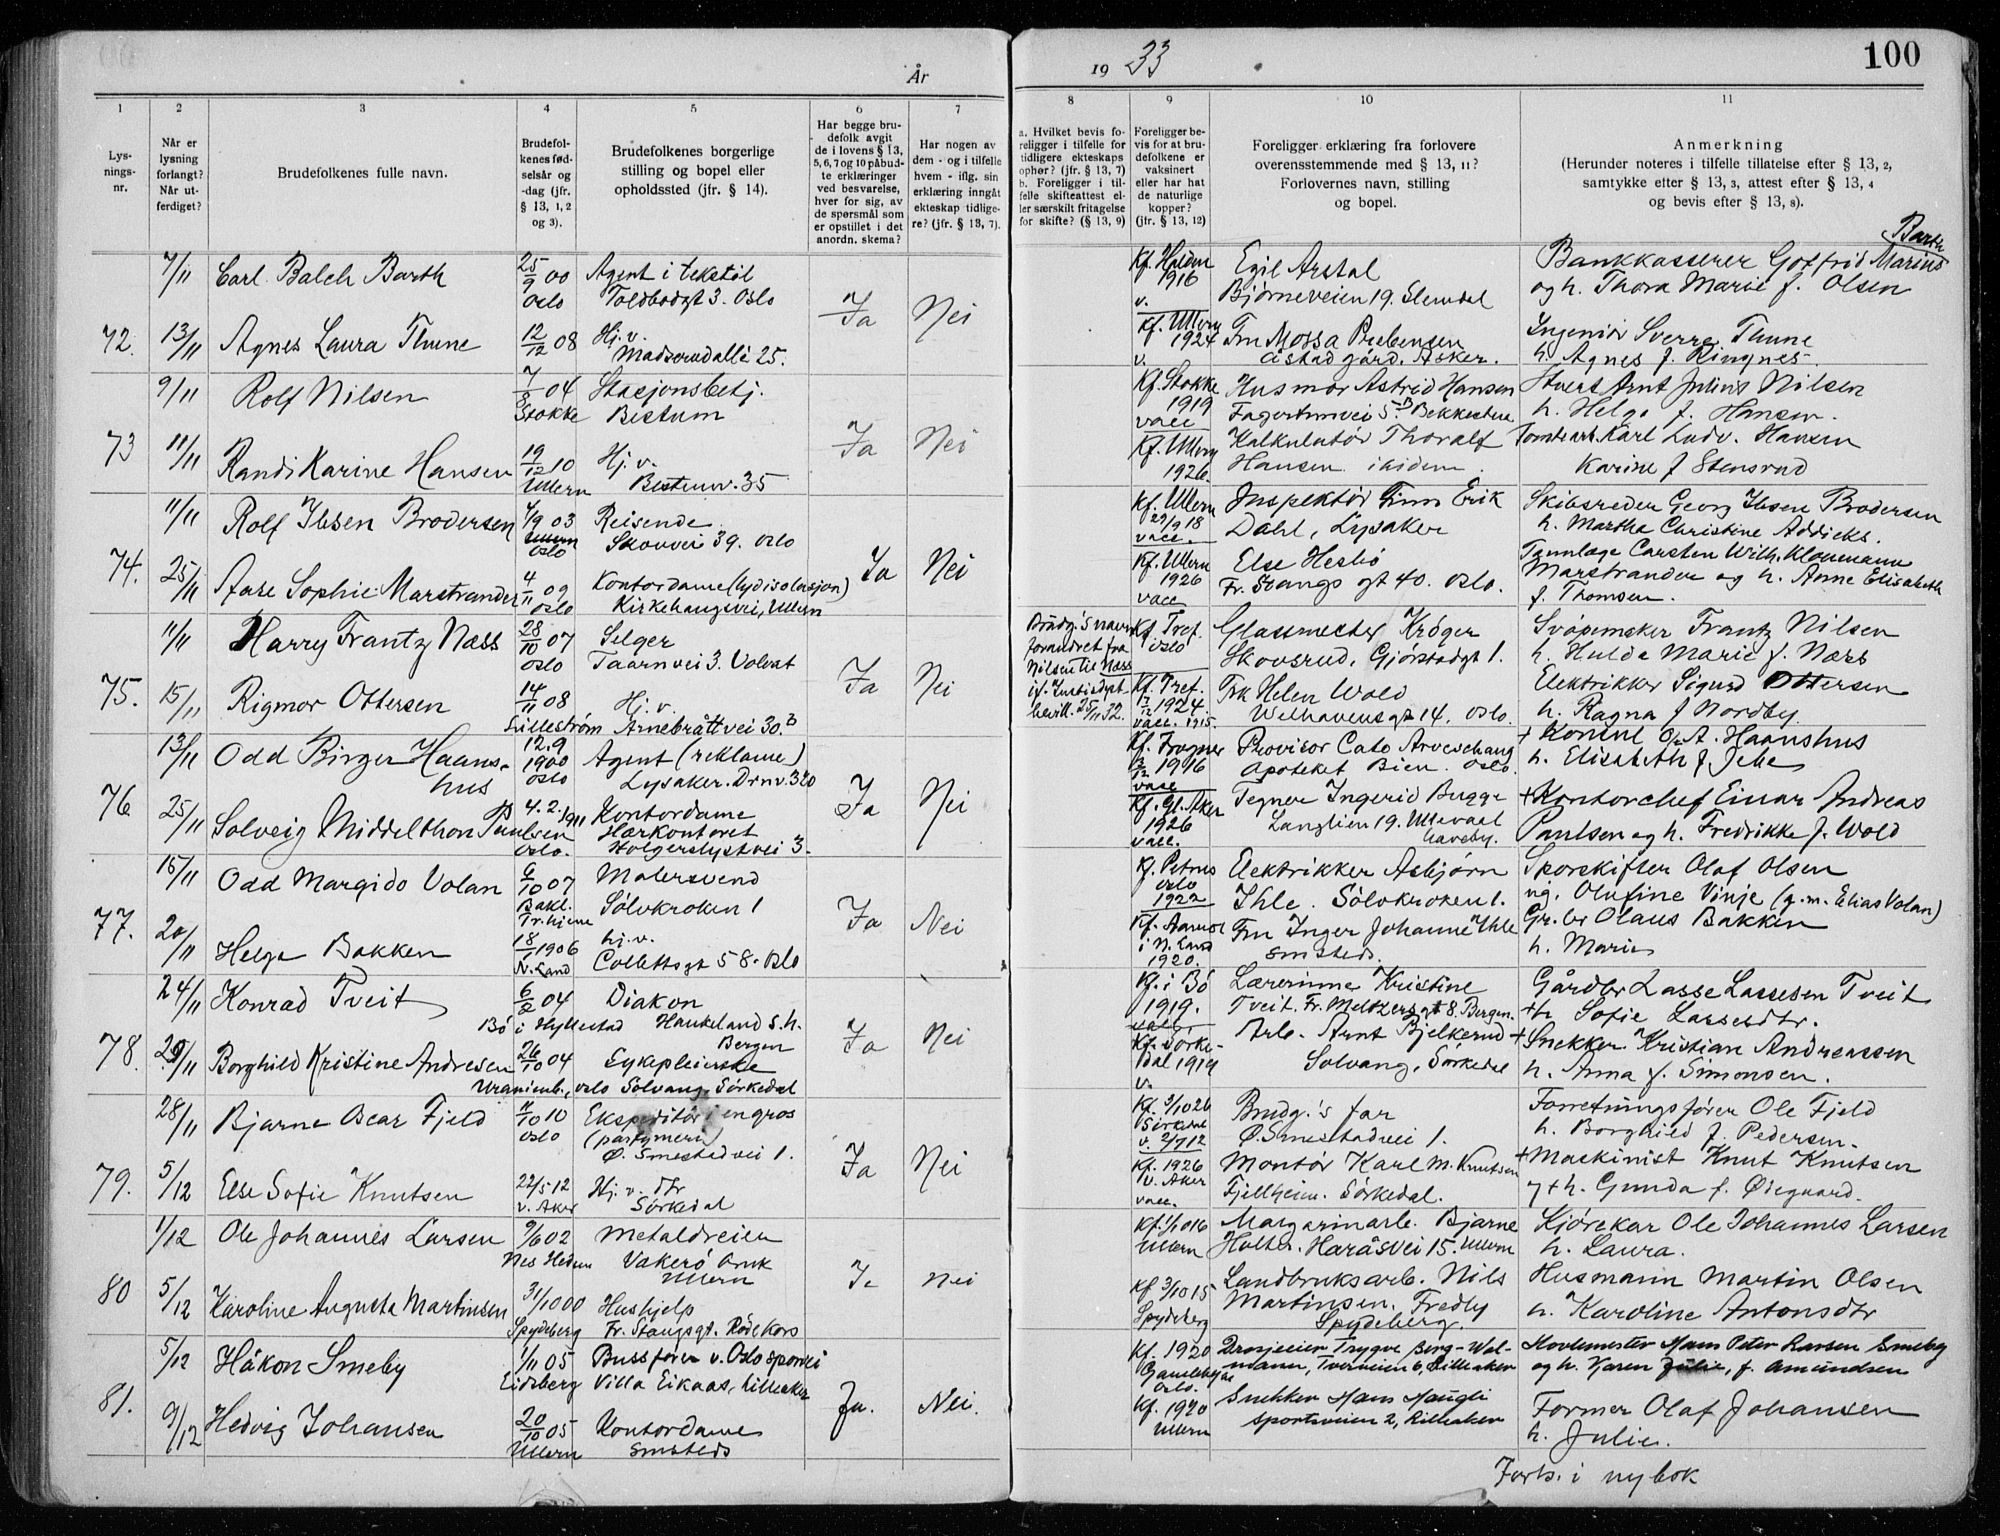 År
19 33
100
1
2
3
4
5
6
7
8
9
10
11
Lys-
nings-
nr.
Når er
lysning
forlangt?
Når ut-
ferdiget?
Brudefolkenes fulle navn.
Brudefol-
kenes fød-
selsår og
-dag (jfr.
§ 13, 1, 2
og 3).
Brudefolkenes borgerlige
stilling og bopel eller
opholdssted (jfr. § 14).
Har begge bru-
defolk avgit
de i lovens § 13,
5, 6, 7 og 10 påbud-
te erklæringer
ved besvarelse,
hver for sig, av
de spørsmål som
er opstillet i det
anordn. skema?
Har nogen av
dem - og i tilfelle
hvem - iflg. sin
erklæring inngått
ekteskap tidlige-
re? (jfr. § 13, 7).
a. Hvilket bevis fo-
religger i tilfelle for
tidligere ekteskaps
ophør? (jfr. § 13, 7)
b. Foreligger i til-
felle skifteattest el-
ler særskilt fritagelse
for skifte? (§ 13, 9)
Foreligger be-
vis for at bru-
defolkene er
vaksinert
eller har hat
de naturlige
kopper?
(jfr. § 13, 12)
Foreligger erklæring fra forlovere
overensstemmende med § 13, 11?
Forlovernes navn, stilling
og bopel.
Anmerkning
(Herunder noteres i tilfelle tillatelse efter § 13, 2,
samtykke efter § 13, 3, attest efter § 13, 4
og bevis efter § 13, 8).
7/11 Carl Balch Barth 25/9 00 Oslo
Agent i tekstil
Toldbodgt 3. Oslo
Kf. Halden 1916 v.
Egil Arstal
Bjørneveien 19. Slemdal
Barth
Bankkasserer Gotfrid Marius
og h. Thora Marie f. Olsen
72. 13/11 Agnes Laura Thune 12/12 08
Hj. v.
Madserudallé 25.
Ja Nei
Kf. Ullern 1924 v.
Fru Mossa Prebensen
Åstad gård. Asker.
Ingeniør Sverre Thune
h. Agnes f. Ringnes
9/11 Rolf Nilsen 7/8 04 Stokke
Stasjonsbetj.
Bestum
Kf. Stokke 1919 vacc
Husmor Astrid Hansen
Fagertunvei 5B Bekkestua
Arnt Julius Nilsen
h. Helga f. Hansen.
73 11/11 Randi Karine Hansen 19/12 10 Ullern
Hj. v.
Bestumv. 35
Ja Nei
Kf. Ullern 1926.
Kalkulatør Thoralf
Hansen ibidem.
Tomtearb. Karl Ludv. Hansen
Karine f Stensrud
11/11 Rolf Ibsen Brodersen 4/9 03 Oslo
Reisende
Skovvei 39. Oslo
Kf. Ullern 29/9 18 vacc.
Inspektør Finn Erik
Dahl, Lysaker
Skibsreder Georg Ibsen Brodersen
h. Martha Christine Addicks.
74. 25/11 Aase Sophie Marstrander 4/11 09 Oslo
Kontordame (lydisolasjon)
Kirkehaugsvei, Ullern
Ja Nei
Kf. Ullern 1926 vacc
Else Hesbø
Fr. Stangs gt 40. Oslo.
Tannlæge Carsten Wilh. Klouman
Marstrander og h. Anne Elisabeth
f. Thomsen.
11/11 Harry Frantz Næss 28/10 07 Oslo
Selger
Taarnvei 3. Volvat
Brudg's navn
forandret fra
Nilsen til Næss
if. Justisdpt
bevill. 25/11 32.
Kf. Tref. Oslo
Glassmester Krøger
Skovsrud, Gjørstadgt 1.
Svøpemaker Frantz Nilsen
h. Hulda Marie f. Næss
75. 15/11 Rigmor Ottersen 14/11 08 Lilleström
Hj. v.
Arnebråttvei 30.B
Ja Nei
Kf. Tref. 1924. vacc. 1915.
Frk Helen Wold
Welhavensgt 14. Oslo.
Elektrikker Sigurd Ottersen
h. Ragna f Nordby.
13/11 Odd Birger Haans-
hus
12.9 1900 Oslo
Agent (reklame)
Lysaker. Drnv. 320
Kf. Frogner 3/12 1916 vacc
Provisor Cato Arveschaug
Apoteket Bien. Oslo.
+ Konsul O. A. Haanshus
h. Elisabeth f. Jebe
76 25/11 Solveig Middelthon Paulsen 4.2.1911 Oslo.
Kontordame
Hærkontoret
Holgerslystvei 3.
Ja Nei
Kf. Gl. Aker 1926 vacc.
Tegner Ingerid Bugge
Langlien 19. Ullevaal
haveby.
+ Kontorchef Einar Andreas
Paulsen og h. Fredrikke f. Wold
15/11 Odd Margido Volan 6/10 07 Bakl. Tr.hjem
Malersvend
Sølvkroken 1
Kf. Petrus Oslo 1922
Elektrikker Asbjørn
Ihle. Sølvkroken 1.
Sporskifter Olaf Olsen
ug. Olufine Vinje (g. m. Elias Volan)
77. 20/11 Helga Bakken 18/11 1906 N. Land
hj. v.
Collettsgt 58. Oslo
Ja Nei
Kf. i N. Land 1920.
Fru Inger Johanne Ihle
smsteds.
Gr. br Olaus Bakken
h. Marie
24/11 Konrad Tveit 6/2 04
Bø i Hyllestad
Diakon
Haukeland S.h.
Bergen
Kf. i Bø 1919. vacc.
Lærerinne Kristine
Tveit. Fr. Meltzersgt 8. Bergen.
Gårdbr Lasse Lassesen Tveit
+ h. Sofie Larsesdtr.
78. 29/11 Borghild Kristine Andresen 26/10 04
Uranienb., Oslo
Sykepleierske
Solvang, Sørkedal
Ja Nei
Kf. Sørke-
dal 1919 v.
Arb. Arnt Bjelkerud
Solvang, Sørkedal
+ Snekker Kristian Andreassen
h. Anna f. Simonsen.
28/11 Bjarne Oscar Fjeld 11/10 10 Oslo
Ekspeditør i en gros
(parfymeri)
Ø. Smestadvei 1.
Kf. 3/10 26
Sørkedal
v. 2/7 12
Brudg.'s far
Ø. Smestadvei 1.
Forretningsfører Ole Fjeld
h. Borghild f. Pedersen.
79. 5/12 Else Sofie Knutsen 22/5 12 V. Aker
Hj. v. dtr
Sørkedal
Ja Nei
Kf. 1926 V. Aker vacc.
Montør Karl M. Knutsen
Fjellheim. Sørkedal.
+ Maskinist Knut Knutsen
+ h. Gunda f. Ødegaard.
1/12 Ole Johannes Larsen 9/6 02 Nes Hedm
Metaldreier
Vakerø bruk
Ullern
Kf. 1/10 16 Ullern
Margarinarb. Bjarne
Holter. Haråsvei 15. Ullern
Kjørekar Ole Johannes Larsen
h. Laura.
80 5/12 Karoline Augusta Martinsen 31/10 00 Spydeberg
Hushjelp
Fr. Stangsgt. Rødekors
Ja Nei
Kf 3/10 15 Spydeberg
Landbruksarb. Nils
Martinsen. Fredby
Spydeberg.
Husmann Martin Olsen
h. Karoline Antonsdtr
5/12 Håkon Smeby 1/11 05 Eidsberg
Bussfører v. Oslo sporvei
Villa Eikaas, Lilleaker
Kf. 1920 Gamlebyen Oslo.
Drosjeeier Trygve Berg-Wal-
mann, Tverrveien 6, Lilleaker
Hovlemester Hans Peter Larsen Smeby
og h. Karen Julie, f. Amundsen
81. 9/12 Hedvig Johansen 20/10 05 Ullern
Kontordame
smsteds
Ja. Nei.
Kf. 1920 Ullern
Snekker Hans Haugli
Sportsveien 2, Lilleaker
Former Olaf Johansen
h. Julie.
Forts. i ny bok